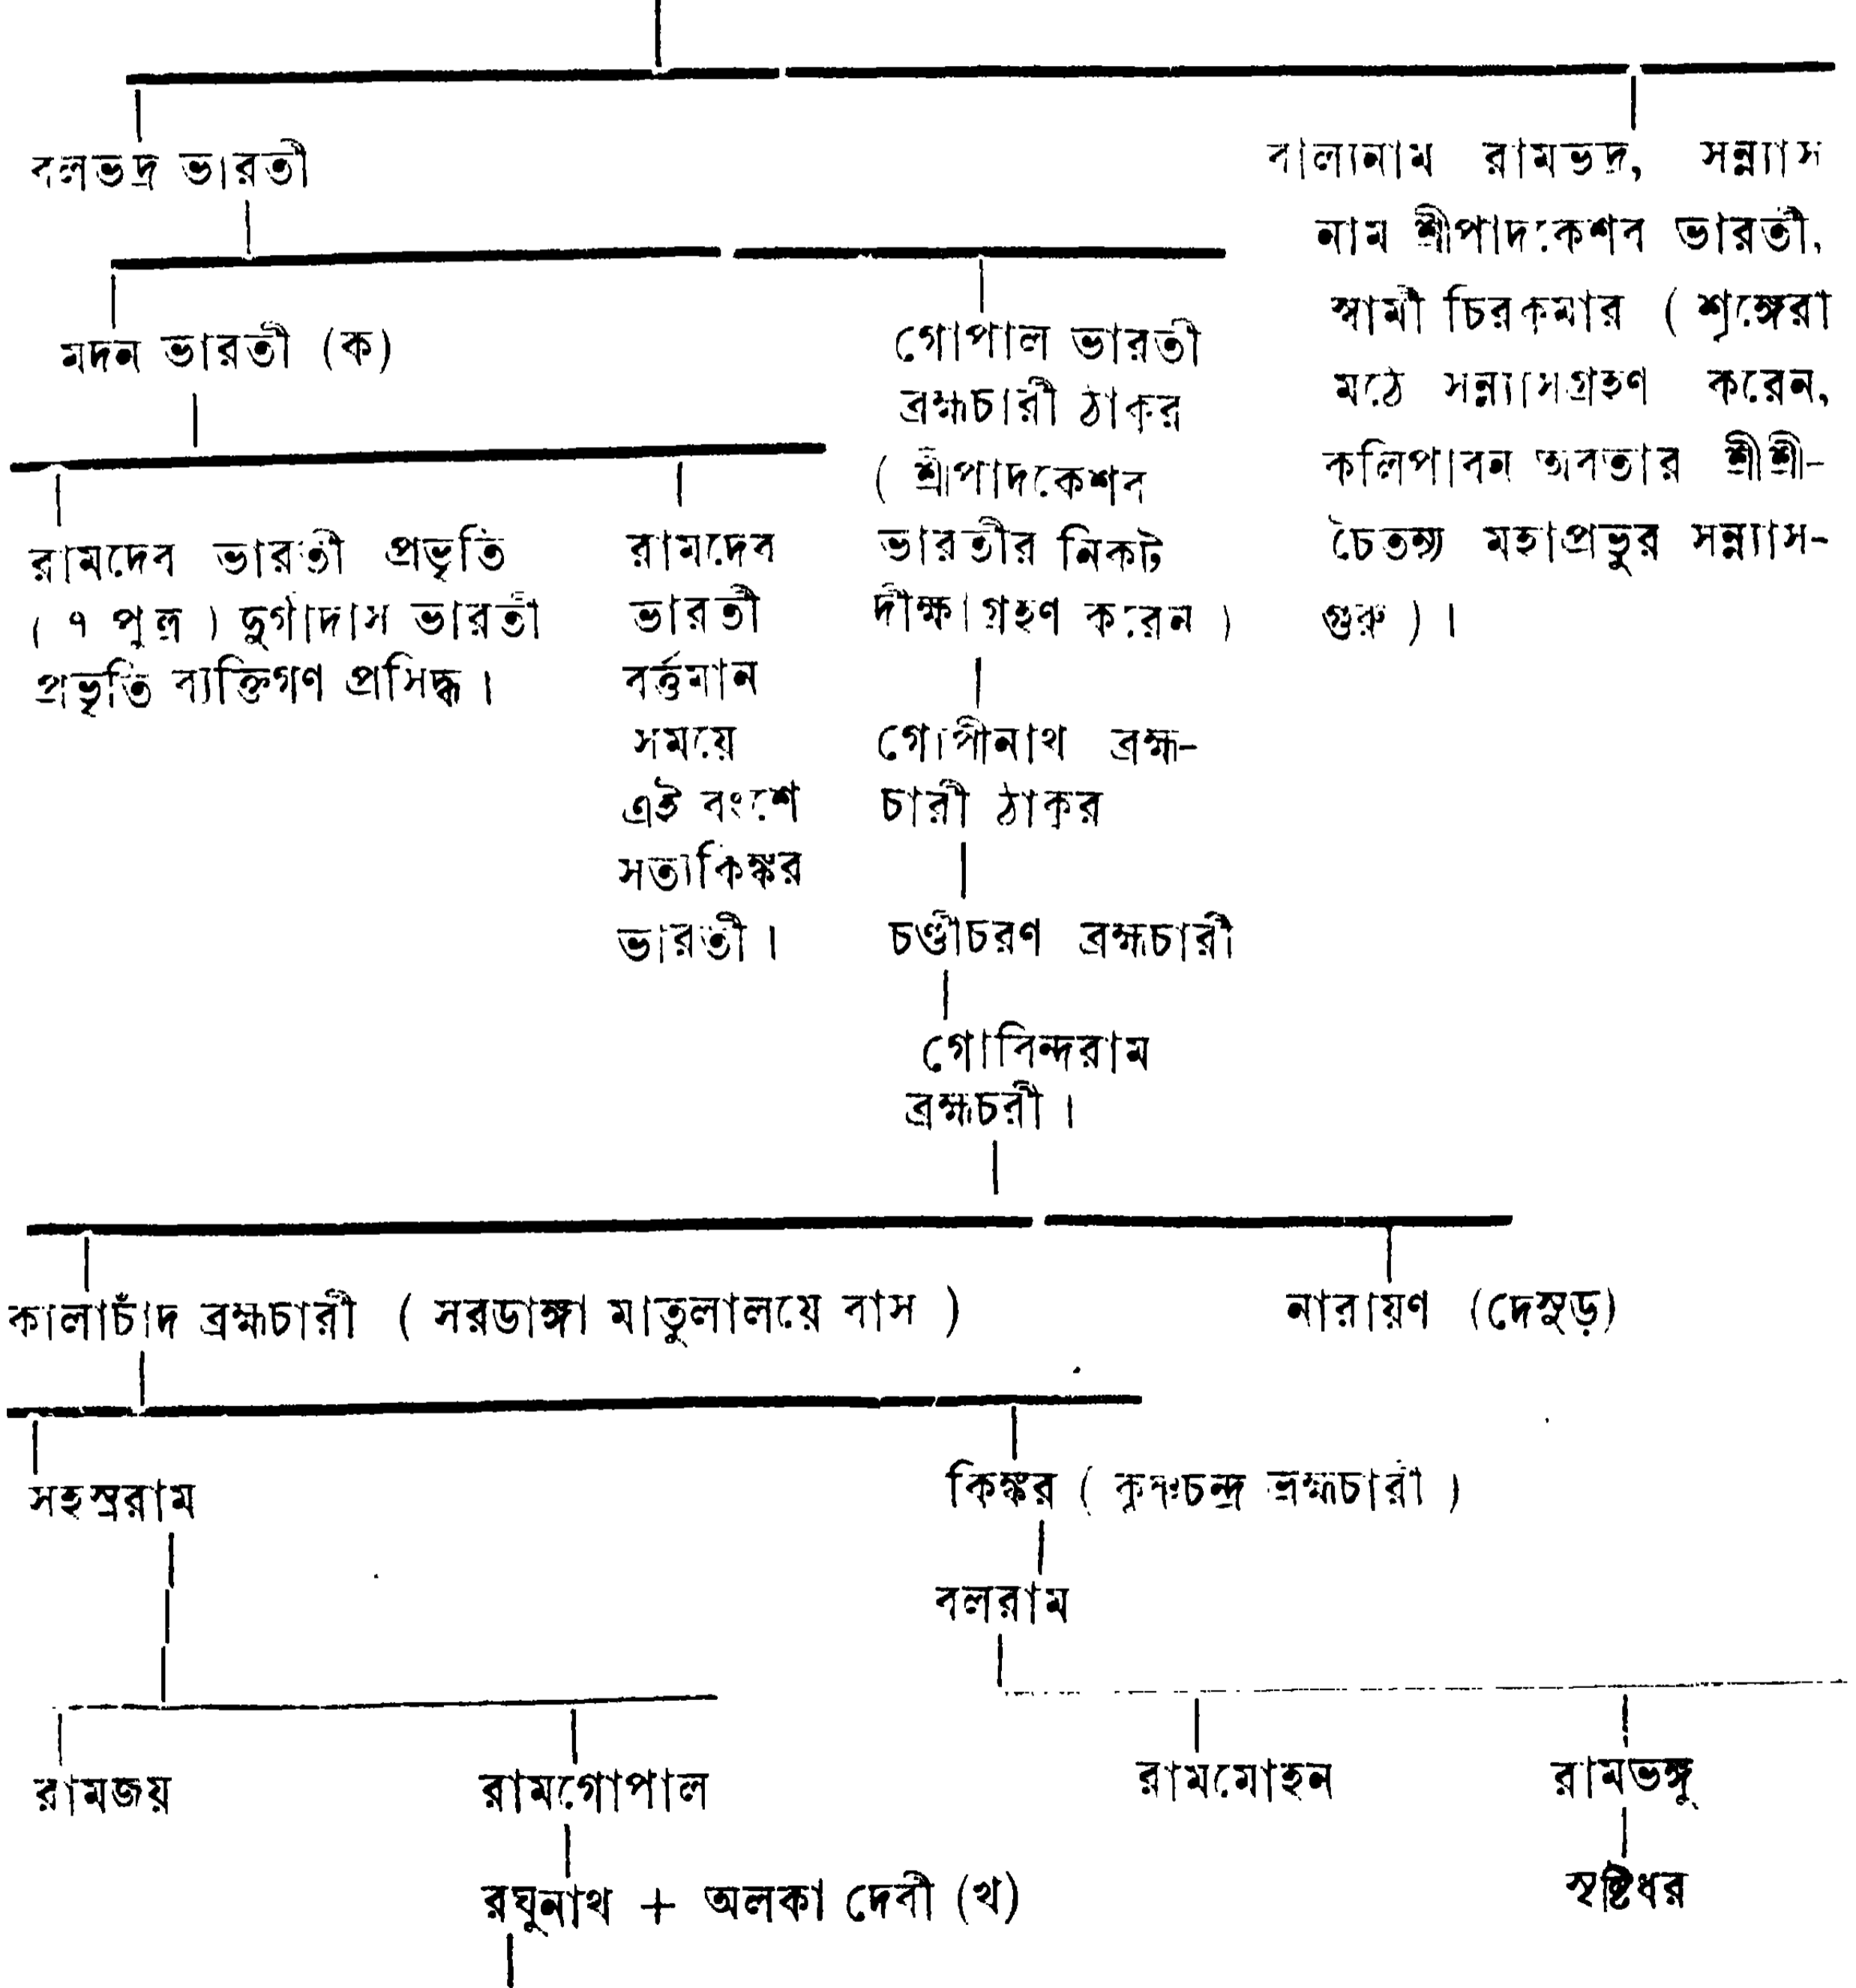 বলভদ্র ভারতী
বাল্যনাম রামভদ্র, সন্ন্যাস
নাম শ্রীপাদকেশব ভারতী,
স্বামী চিরকুমার ( শৃঙ্গেরা
মঠে সন্ন্যাসগ্রহণ করেন,
কলিপাবন অবতার শ্রীশ্রী-
চৈতন্য মহাপ্রভুর সন্ন্যাস-
গুরু ) ।
মদন ভারতী (ক)
গোপাল ভারতী
ব্রহ্মচারী ঠাকুর
( শ্রীপাদকেশব
ভারতীর নিকট
দীক্ষাগ্রহণ করেন )
রামদেব ভারতী প্রভৃতি
( ৭ পুত্র ) দুর্গাদাস ভারতী
প্রভৃতি ব্যক্তিগণ প্রসিদ্ধ ।
রামদেব
ভারতী
বর্ত্তমান
সময়ে
এই বংশে
সত্যকিঙ্কর
ভারতী ।
গোপীনাথ ব্রহ্ম-
চারী ঠাকুর
চণ্ডীচরণ ব্রহ্মচারী
গোবিন্দরাম
ব্রহ্মচরী ।
কালাচাঁদ ব্রহ্মচারী ( সরডাঙ্গা মাতুলালয়ে বাস )
নারায়ণ (দেসুড়)
সহস্ররাম
কিঙ্কর ( কৃষ্ণচন্দ্র ব্রহ্মচারী )
বলরাম
রামজয়
রামগোপাল
রামমোহন
রামভঙ্গু
রঘুনাথ + অলকা দেবী (খ)
সৃষ্টিধর